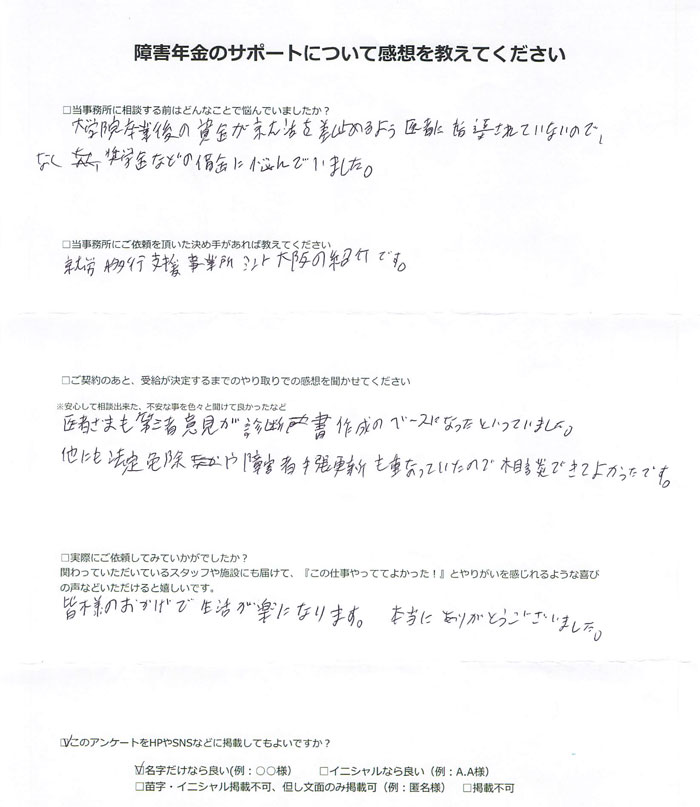 障害年金のサポートについて感想を教えてください
□当事務所に相談する前はどんなことで悩んでいましたか?
大学院卒業後の資金が 差止めるよう医者に指導されていないので、
なく 奨学金などの借金に悩んでいました。
□当事務所にご依頼を頂いた決め手があれば教えてください
就労移行支援事業所 大阪の紹介です。
□ご契約のあと、受給が決定するまでのやり取りでの感想を聞かせてください
※安心して相談出来た、不安な事を色々と聞けて良かったなど
医者さまも第三者意見が診断書作成のベースになったといっていました。
他にも法定免除や障害者手帳更新も重なっていたので相談できてよかったです。
□実際にご依頼してみていかがでしたか?
関わっていただいているスタッフや施設にも届けて、『この仕事やっててよかった!』とやりがいを感じれるような喜び
の声などいただけると嬉しいです。
皆様のおかげで生活が楽になります。 本当にありがとうございました。
☑このアンケートをHPやSNSなどに掲載してもよいですか?
☑名字だけなら良い(例:○○様) □イニシャルなら良い(例:A.A様)
□苗字・イニシャル掲載不可、但し文面のみ掲載可(例:匿名様) □掲載不可